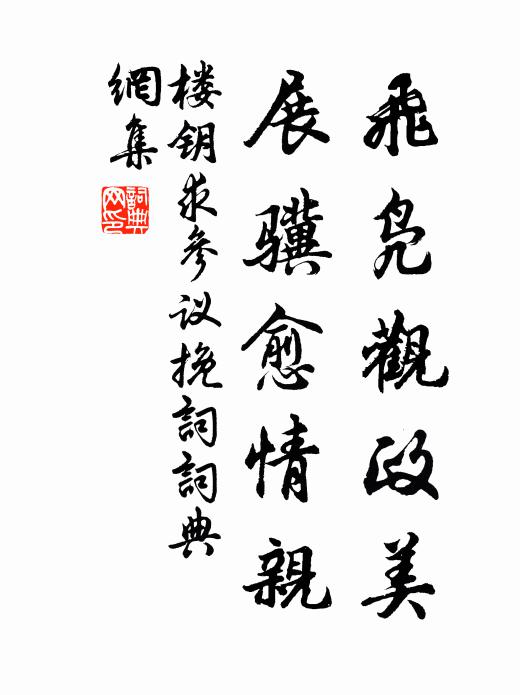 飛鳧觀政美
展驥愈情親
楼钥求参议挽詞詞典
網集
詞典網印